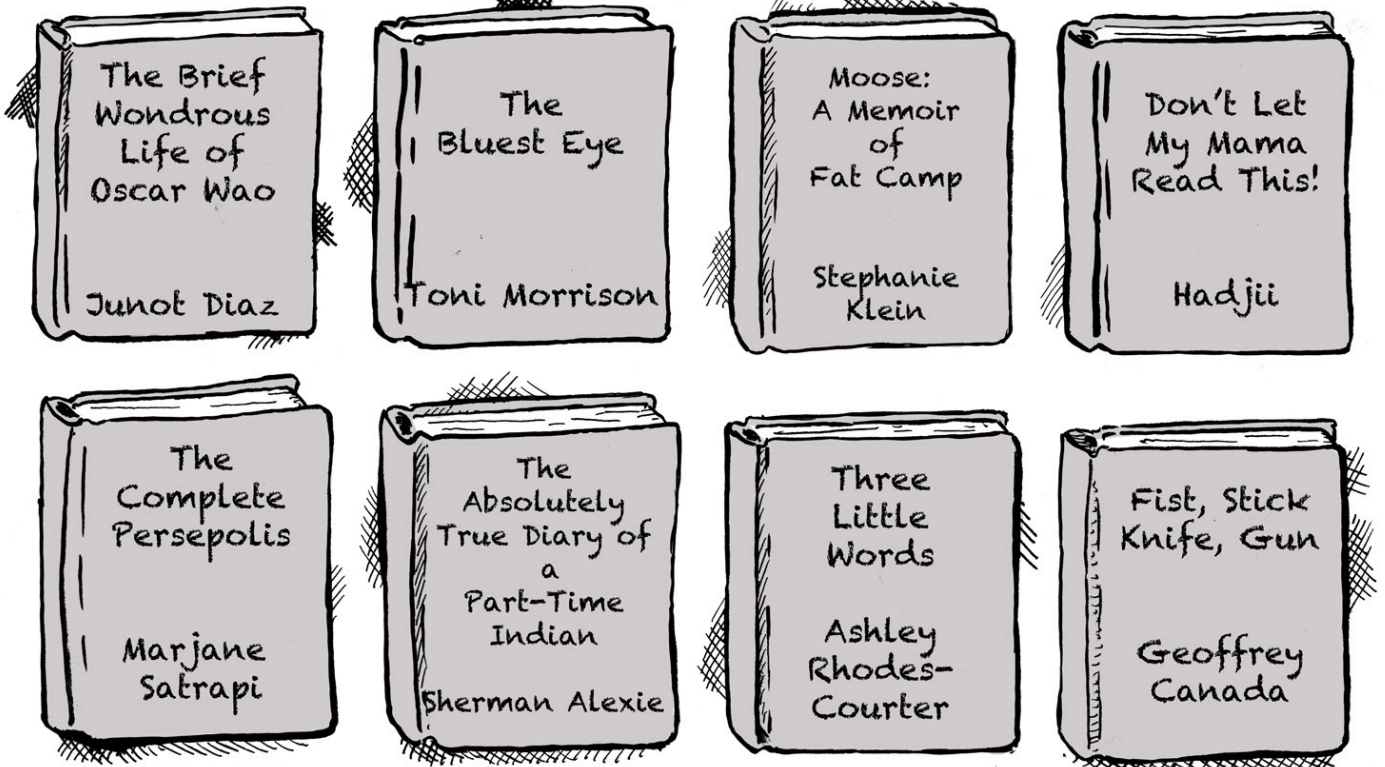 The Brief
Wondrous
Life of
Oscar Wao
Junot Diaz
The
Bluest Eye
Toni Morrison
Moose:
A Memoir
of
Fat Camp
Stephanie
Klein
Don't Let
My Mama
Read This!
Hadjii
The
Complete
Persepolis
Marjane
Satrapi
The
Absolutely
True Diary of
a
Part-Time
Indian
Sherman Alexie
Three
Little
Words
Ashley
Rhodes-
Courter
Fist, Stick
Knife, Gun
Geoffrey
Canada